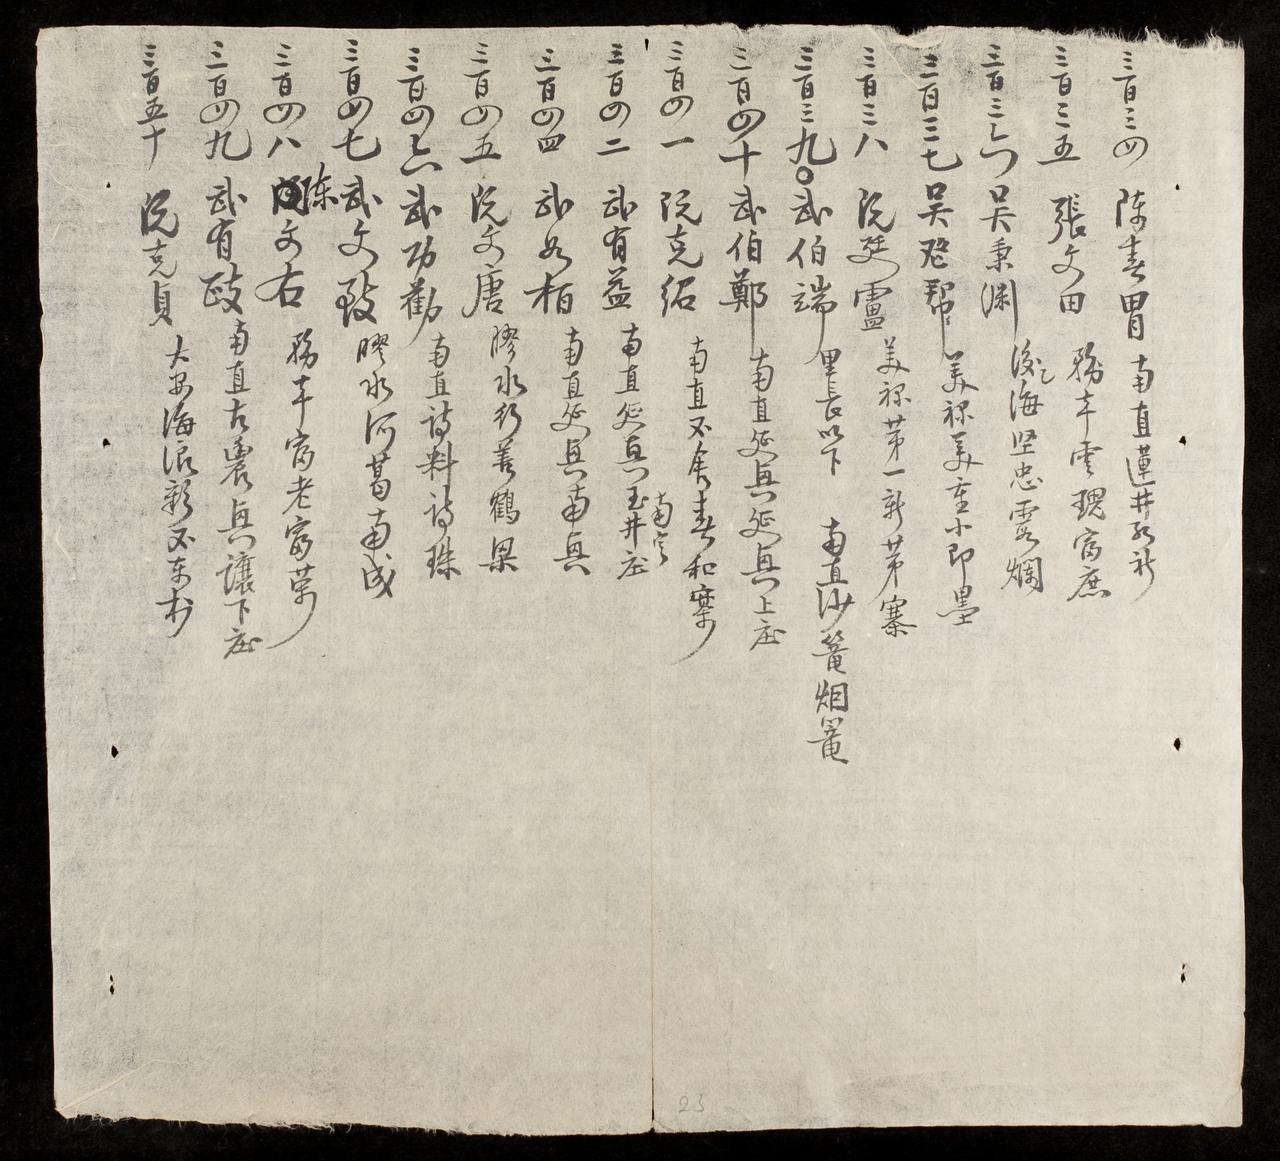 三百三四 陈春冑 南直蓮井
三百三五 張文田 務本雲瑰富庶
三百三六 吳秉渊 海坚忠霑爛
三百三七 吴登幇 美祿美重小即墨
三百三八 阮廷盧 美祿苐一新苐寨
三百三九 武伯端 里長以下 南直沙篭烟篭
三百四十 武伯鄭 南直延興延興上庄
三百四一 阮克紹 南直不貪春和寨 南定
三百四二 武有益 南直延興玉井庄
三百四四 武如栢 南直延興南興
三百四五 阮文唐 膠水行善鶴梁
三百四六 武功勸 南直詩料詩珠
三百四七 武文致 膠水河葛南成
三百四八 陈文右 務本富老富華
三百四九 武有政 南直古農興讓下庄
三百五十 阮克貞 大安海浪新不東村
23